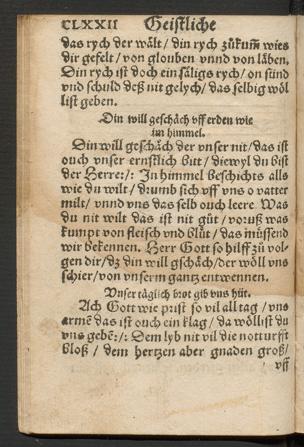 CLXXII Geistliche
das rych der wält / din rych zůkum̃ wies
dir gefelt / von glouben vnnd von läben.
Din rych ist doch ein säligs rych / on sünd
vnd schuld deß nit gelych / das selbig wöl
list geben.
Din will geschäch vff erden wie
im himmel.
Din will geschäch der vnser nit / das ist
ouch vnser ernstlich bitt / diewyl du bist
der Herre:/: In himmel beschichts alls
wie du wilt / drumb sich vff vns o vatter
milt / vnnd vns das selb ouch leere. Was
du nit wilt das ist nit gůt / voruß was
kumpt von fleisch vnd blůt / das müssend
wir bekennen. Herr Gott so hilff zů vol-
gen dir / dz din will gschäch / der wöll vns
schier / von vnserm gantz entwennen.
Vnser täglich brot gib vns hüt.
Ach Gott wie prist so vil all tag / vns
armẽ das ist ouch ein klag / da wöllist du
vns gebẽ:/: Dem lyb nit vil die notturfft
bloß / dem hertzen aber gnaden groß /
vff